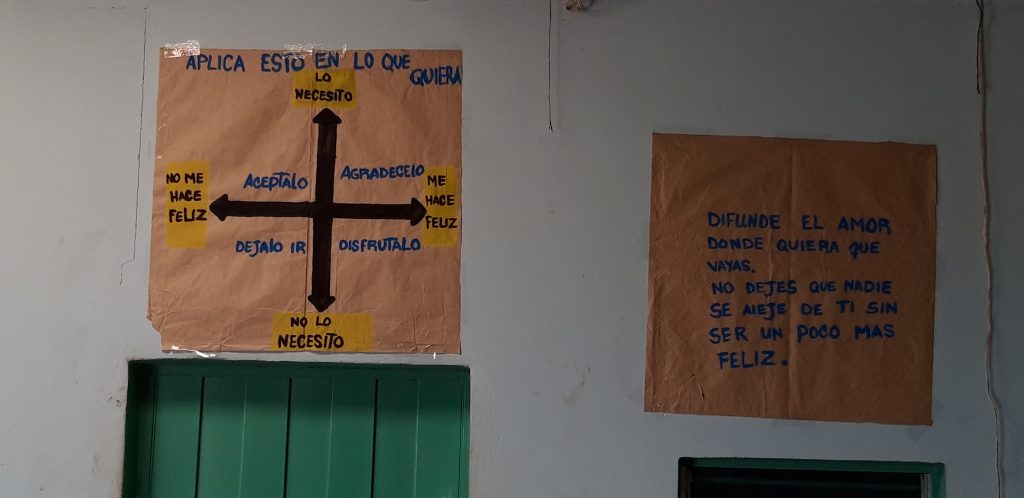 APLICA ESTO EN LO QUE
QUIERA
LO
NECESITO
ACEPTALO
AGRADECELO
NO ME
HACE
FELIZ
ME
HACE
FELIZ
DEJALO IR
DISFRUTALO
NO LO
NECESITO
DIFUNDE EL AMOR
DONDE QUIERA QUE
VAYAS.
NO DEJES QUE NADIE
SE ALEJE DE TI SIN
SER UN POCO MAS
FELIZ.